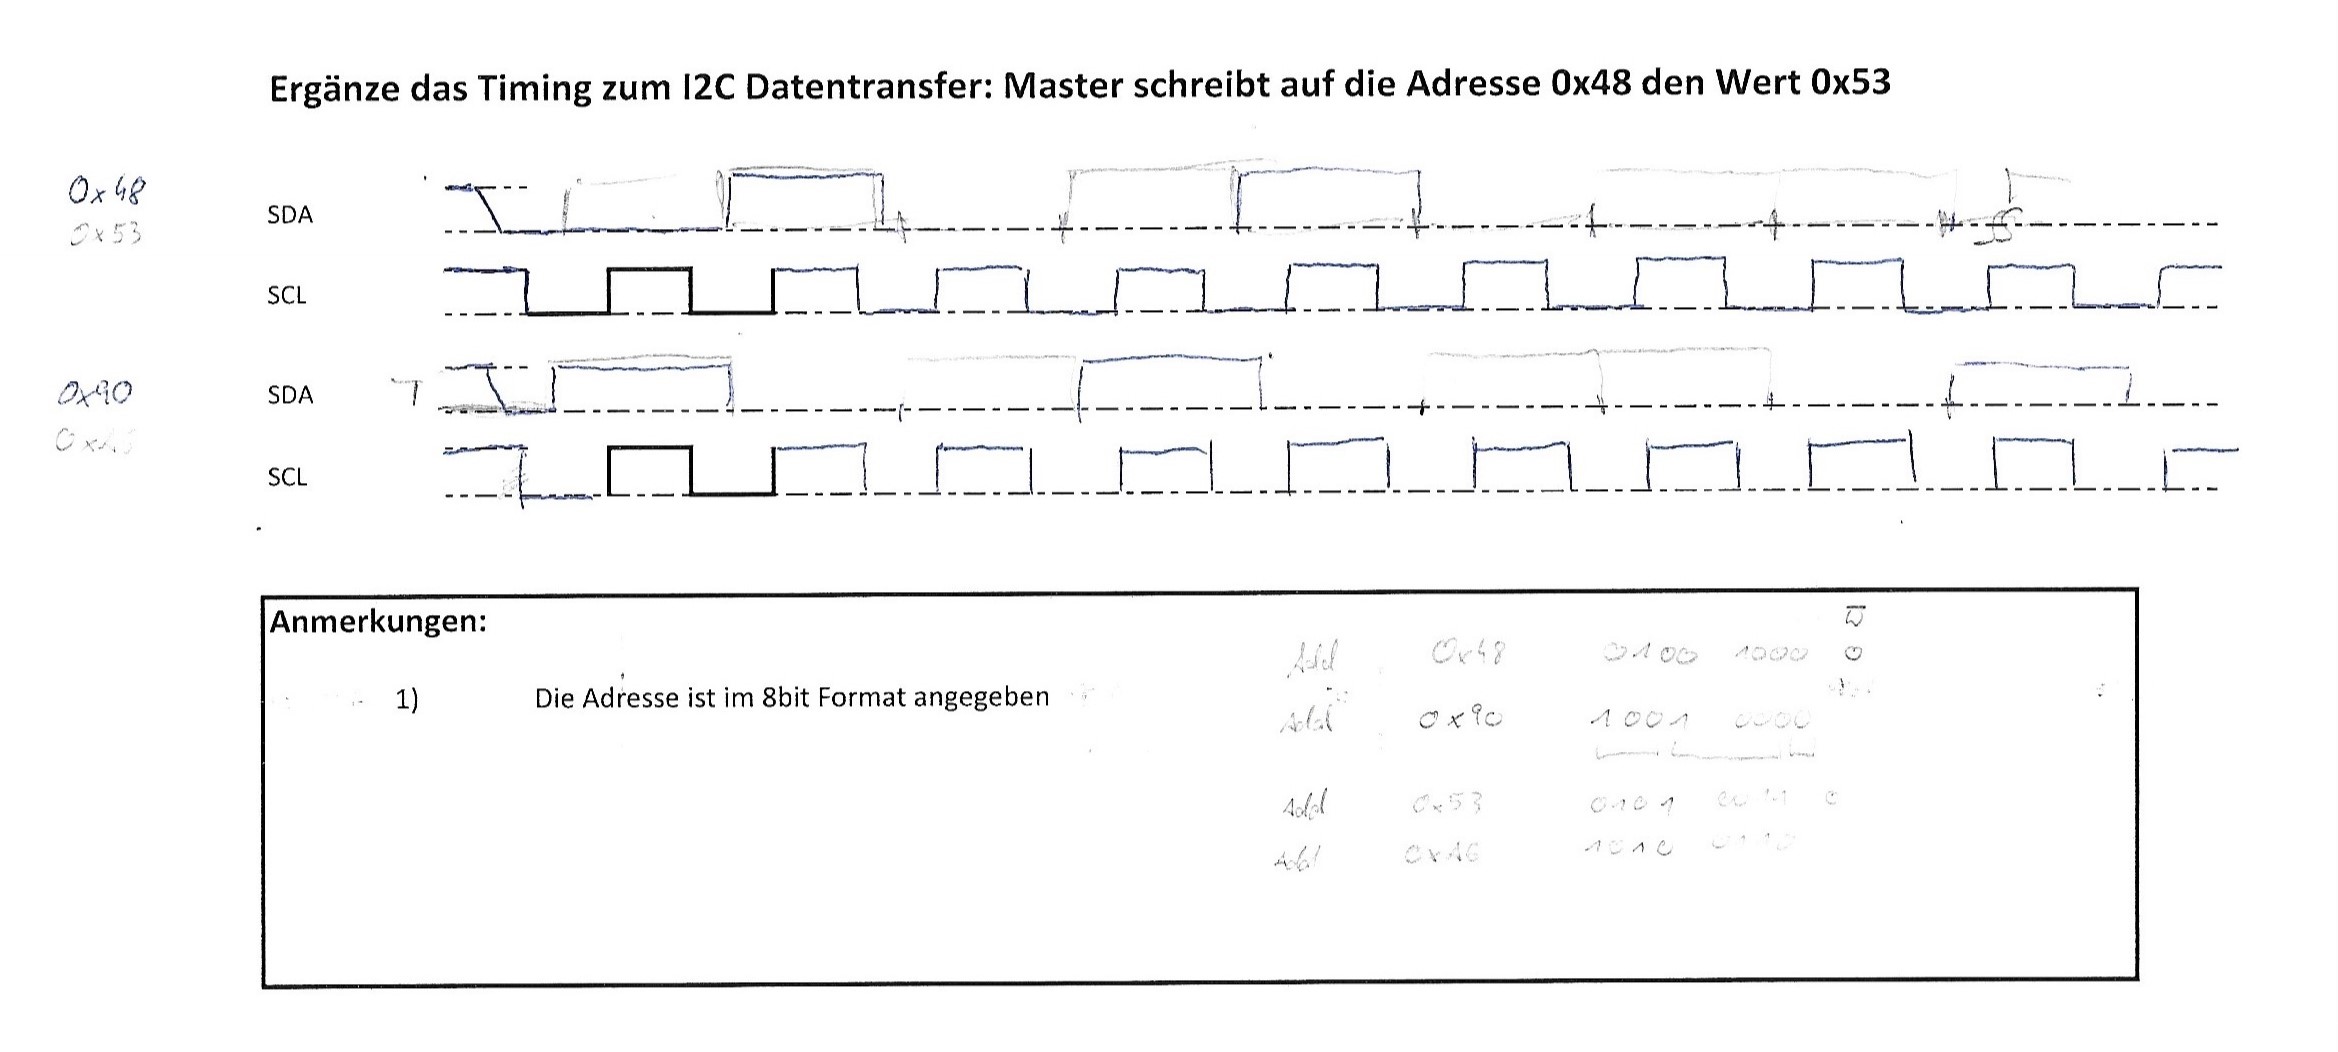 Ergänze das Timing zum I2C Datentransfer: Master schreibt auf die Adresse 0x48 den Wert 0x53
0x48
0x53
SDA
SCL
0x90
SDA
SCL
Anmerkungen:
1) Die Adresse ist im 8bit Format angegeben
W
Add 0x48 0100 1000 0
Add 0x90 1001 0000
Add 0x53 0101 0011 0
Add 0xA6 1010 0110